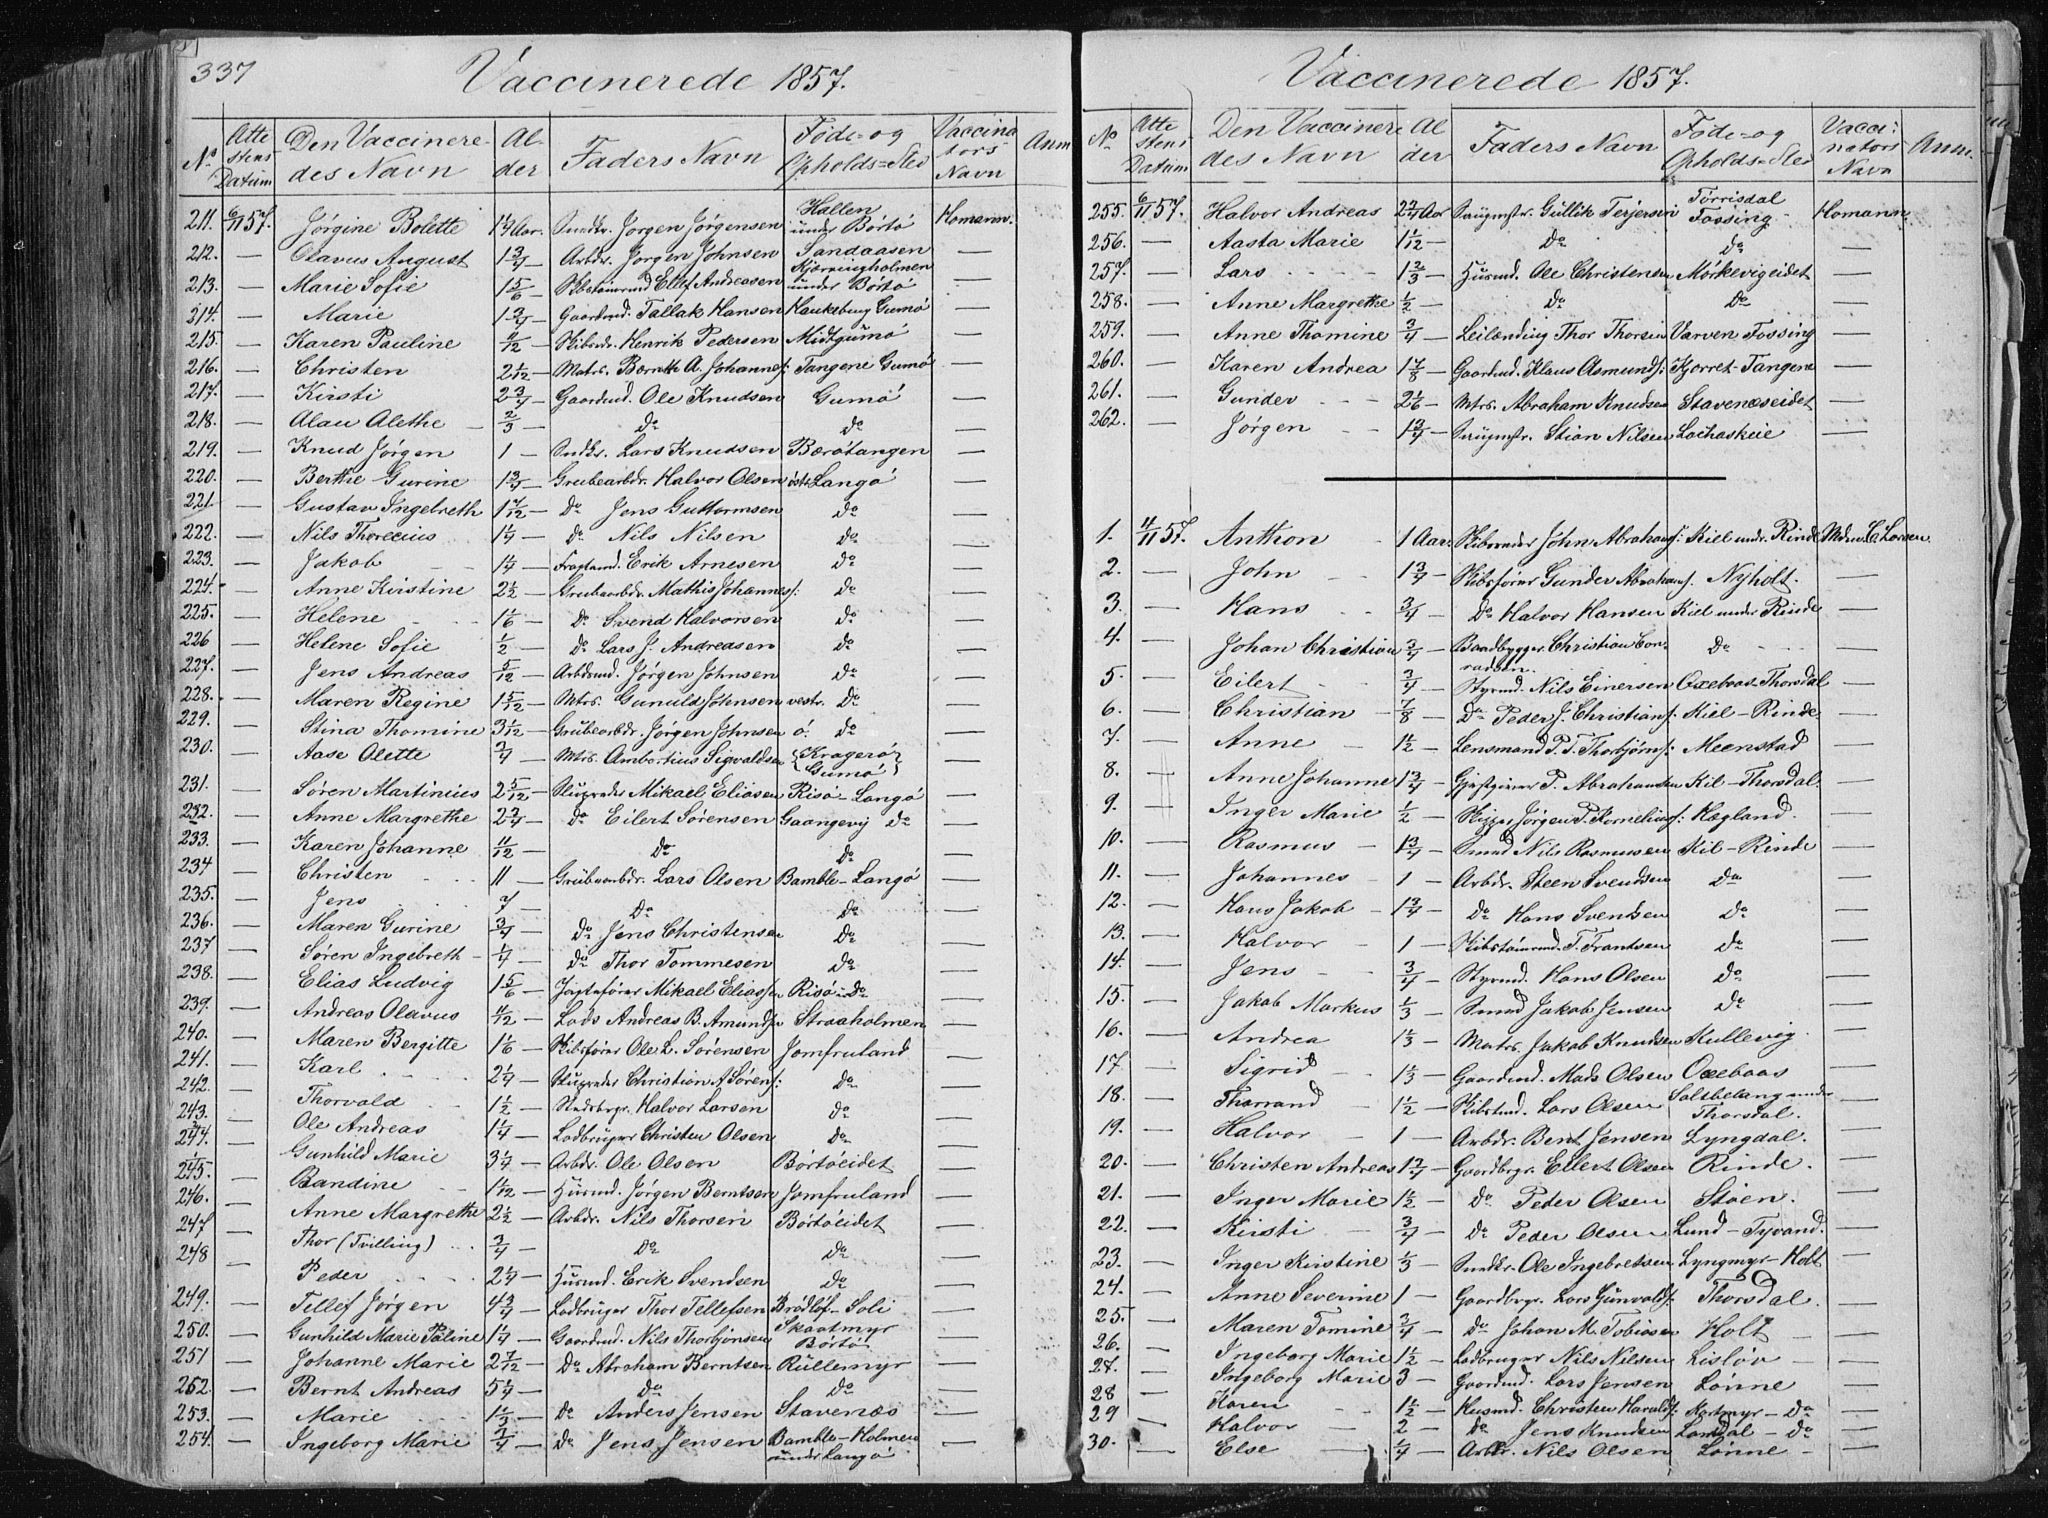 337
Vaccinerede 1857.
No Atte stens Datum Den Vaccinere des Navn Al der Faders Navn Føde- og Opholds=Sted Vaccina tors Navn Anm
211. 6/11 57. Jørgine Bolette 1 1/4 Aar. Jørgen Jørgensen Hallen under Børtö Homann.
212. — Olavus August 1 3/4 — Arbdr. Jørgen Johnsen Sandaasen —
213. — Marie Sofie 1 5/6 — Skbstømrmd Ellef Andreasen Kjærringholmen under Børtö —
214. — Marie 1 3/4 — Gaardmd. Tallak Hansen Hauksberg Gumö —
215. — Karen Pauline 11/12 — Skibsdr. Henrik Pedersen Midtgumö —
216. — Christen 2 1/12 — Matrs. A. Johannes/: Tangene Gumö —
217. — Kirsti 2 3/4 — Gaardmd. Ole Knudsen Gumö —
218. — Alau Alethe — 2/3 — do do —
219. — Knud Jørgen 1 — Lars Knudsen Bærötangen —
220. — Berthe Gurine 1 3/4 — Grubearbdr. Halvor Olsen östr. Langö —
221. — Gustav Ingebreth 1 7/12 — do Jens Guttormsen do —
222. — Nils Thorecius 1/4 — do Nils Nilsen do —
223. — Jakob 1/4 — Erik Arnesen do —
224. — Anne Kirstine 2 1/2 — Grubearbdr. Mathis Johannes/: do —
225. — Helene 1/6 — do Svend Halvorsen do —
226 — Helene Sofie 1/2 — do Lars J. Andreasen do —
227. — Jens Andreas 5/12 — Arbdsmd. Jørgen Johnsen do —
228. — Maren Regine 1 5/12 — Mtrs. Gunuld Johnsen vestr. do —
229. — Stina Thomine 3 1/12 — Grubearbdr. Jørgen Johnsen ö. do —
230. — Aase Olette 3/4 — Mtrs. Ambortius Sigvaldsen (Kragerö) (Gumö) —
231. — Søren Martinius 2 5/12 — Mikael Eliasen Risö – Langö —
232. — Anne Margrethe 2 3/4 — do Eilert Sørensen Gaangevig do —
233. — Karen Johanne 11/12 — do do —
234 — Christen 11 — Grubearbdr. Lars Olsen Bamble – Langö —
235. — Jens 7 — do do —
236. — Maren Gurine 3/4 — do Jens Christensen do —
237 — Søren Ingebreth 1/4 — do Thor Tommesen do —
238. — Elias Ludvig 1 5/6 — Jagtefører Mikael Elias/en Risö – do —
239. — Andreas Olavus 11/12 — Lods Andreas B. Amunds/n Straaholmen —
240. — Maren Bergitte 1 1/6 — Skibsfører Ole L. Sørensen Jomfruland —
241. — Karl 2 1/4 — Christian A Sørens/: do —
242. — Thorvald 1 1/2 — Halvor Larsen do —
243. — Ole Andreas 1 1/4 — Lodbruger Christen Olsen do —
244. — Gunhild Marie 3 1/4 — Arbdr. Ole Olsen Börtöeidet —
245. — Bandine 1 1/12 — Husmd. Jørgen Berntsen Jomfruland —
246. — Anne Margrethe 2 1/2 — Arbdr. Nils Thorsen Börtöeidet —
247 — Thor (Tvilling) 3/4 — do do —
248 — Peder 2 1/4 — Husmd. Erik Svendsen do —
249. — Tellef Jørgen 4 3/4 — Lodbruger Thor Tellefsen Brödløf – Soli —
250. — Gunhild Marie Paline 1 1/4 — Gaardmd. Nils Thorbjönsen Skaatmyr Börtö —
251 — Johanne Marie 2 7/12 — do Abraham Berntsen Rullemyr —
252. — Bernt Andreas 5 1/4 — do do —
253. — Marie 1 1/3 — do Anders Jensen Stavenæs —
254. — Ingeborg Marie 3/4 — do Jens Jensen Bamble – Holmen under Langö —
Vaccinerede 1857.
No Atte stens Datum Den Vaccinere des Navn Al der Faders Navn Føde- og Opholds=Sted Vacci- nators Navn Anm.
255. 6/11 57. Halvor Andreas 2 3/4 Aar Gullik Terjersen Törrisdal Fossing. Homann.
256. — Aasta Marie 1 1/12 — do do —
257. — Lars 1 2/3 — Husmd. Ole Christensen Mörkevigeidet —
258. — Anne Margrethe 1/2 — do do —
259. — Anne Thomine 3/4 — Leilending Thor Thorsen Varven Fossing —
260. — Karen Andrea 1 7/8 — Gaardmd. Klaus Asmunds/: Kjorret – Tangene —
261. — Gunder 2 1/6 — Mtrs. Abraham Knudsen Stavenæseidet —
262. — Jørgen 1 3/4 — Stian Nilsen —
1. 11/11 57. Anthon 1 Aar. John Abrahams/: Kiel undr. Rinde Mdm. C. Larsen
2. — John 1 3/4 — Skibsfører Gunder Abrahams/: Nyholt. —
3. — Hans 3/4 — do Halvor Hansen Kiel under Rinde —
4. — Johan Christian 3/4 — Baadbygger Christian Con- radsen. do —
5. — Eilert 3/4 — Styrmd. Nils Einersen Oxebaas – Thorsdal —
6. — Christian 7/8 — do Peder J. Christians/: Kiel – Rinde —
7. — Anne 1 1/2 — Lensmand P. T. Thorbjörns/: Meenstad —
8. — Anne Johanne 1 3/4 — Gjæstgiver P. Abrahamsen Kil – Thorsdal. —
9. — Inger Marie 1/2 — Skipper Jørgen P. Kornelius/: Hægland. —
10. — Rasmus 1 3/4 — Smed Nils Rasmusen Kil – Rinde —
11. — Johannes 1 — Arbdr. Steen Svendsen do —
12. — Hans Jakob 1 3/4 — do Hans Svendsen do —
13. — Halvor 1 — Skibstømrmd. T. Frantsen do —
14. — Jens 3/4 — Styrmd. Hans Olsen do —
15. — Jakob Markus 1/3 — Smed Jakob Jensen do —
16. — Andrea 1/3 — Matrs. Jakob Knudsen Kullevig. —
17 — Sigrid 1 1/3 — Gaardmd. Mads Olsen Oxebaas —
18. — Tharrand 1 1/2 — Lars Olsen Saltbelang under Thorsdal. —
19. — Halvor 1 — Arbdr. Bent Jensen Lyngdal. —
20. — Christen Andreas 1 3/4 — Gaardbrgr. Ellert Olsen Rinde. —
21. — Inger Marie 1 1/2 — do Peder Olsen Støen. —
22. — Kirsti 3/4 — do Peder Olsen Lund – Tyvand. —
23. — Inger Kirstine 1/3 — Ole Ingebretsen Lyngmyr – Holt —
24. — Anne Severine 1 — Gaardbrgr. Lars Gunvalds/: Thorsdal. —
25. — Maren Tomine 3/4 — do Johan M. Tobiasen Holt —
26. — Ingeborg Marie 1 1/2 — Lodbruger Nils Nilsen Lisløv —
27. — Ingeborg Marie 3 — Gaardmd. Lars Jensen Lönne —
28 — Karen 1 1/2 — Husmd. Christen Harolds/: Kortmyr – do —
29 — Halvor 2 — do Jens Knudsen Landal – do —
30. — Else 1/4 — Arbdr. Nils Olsen Lönne —